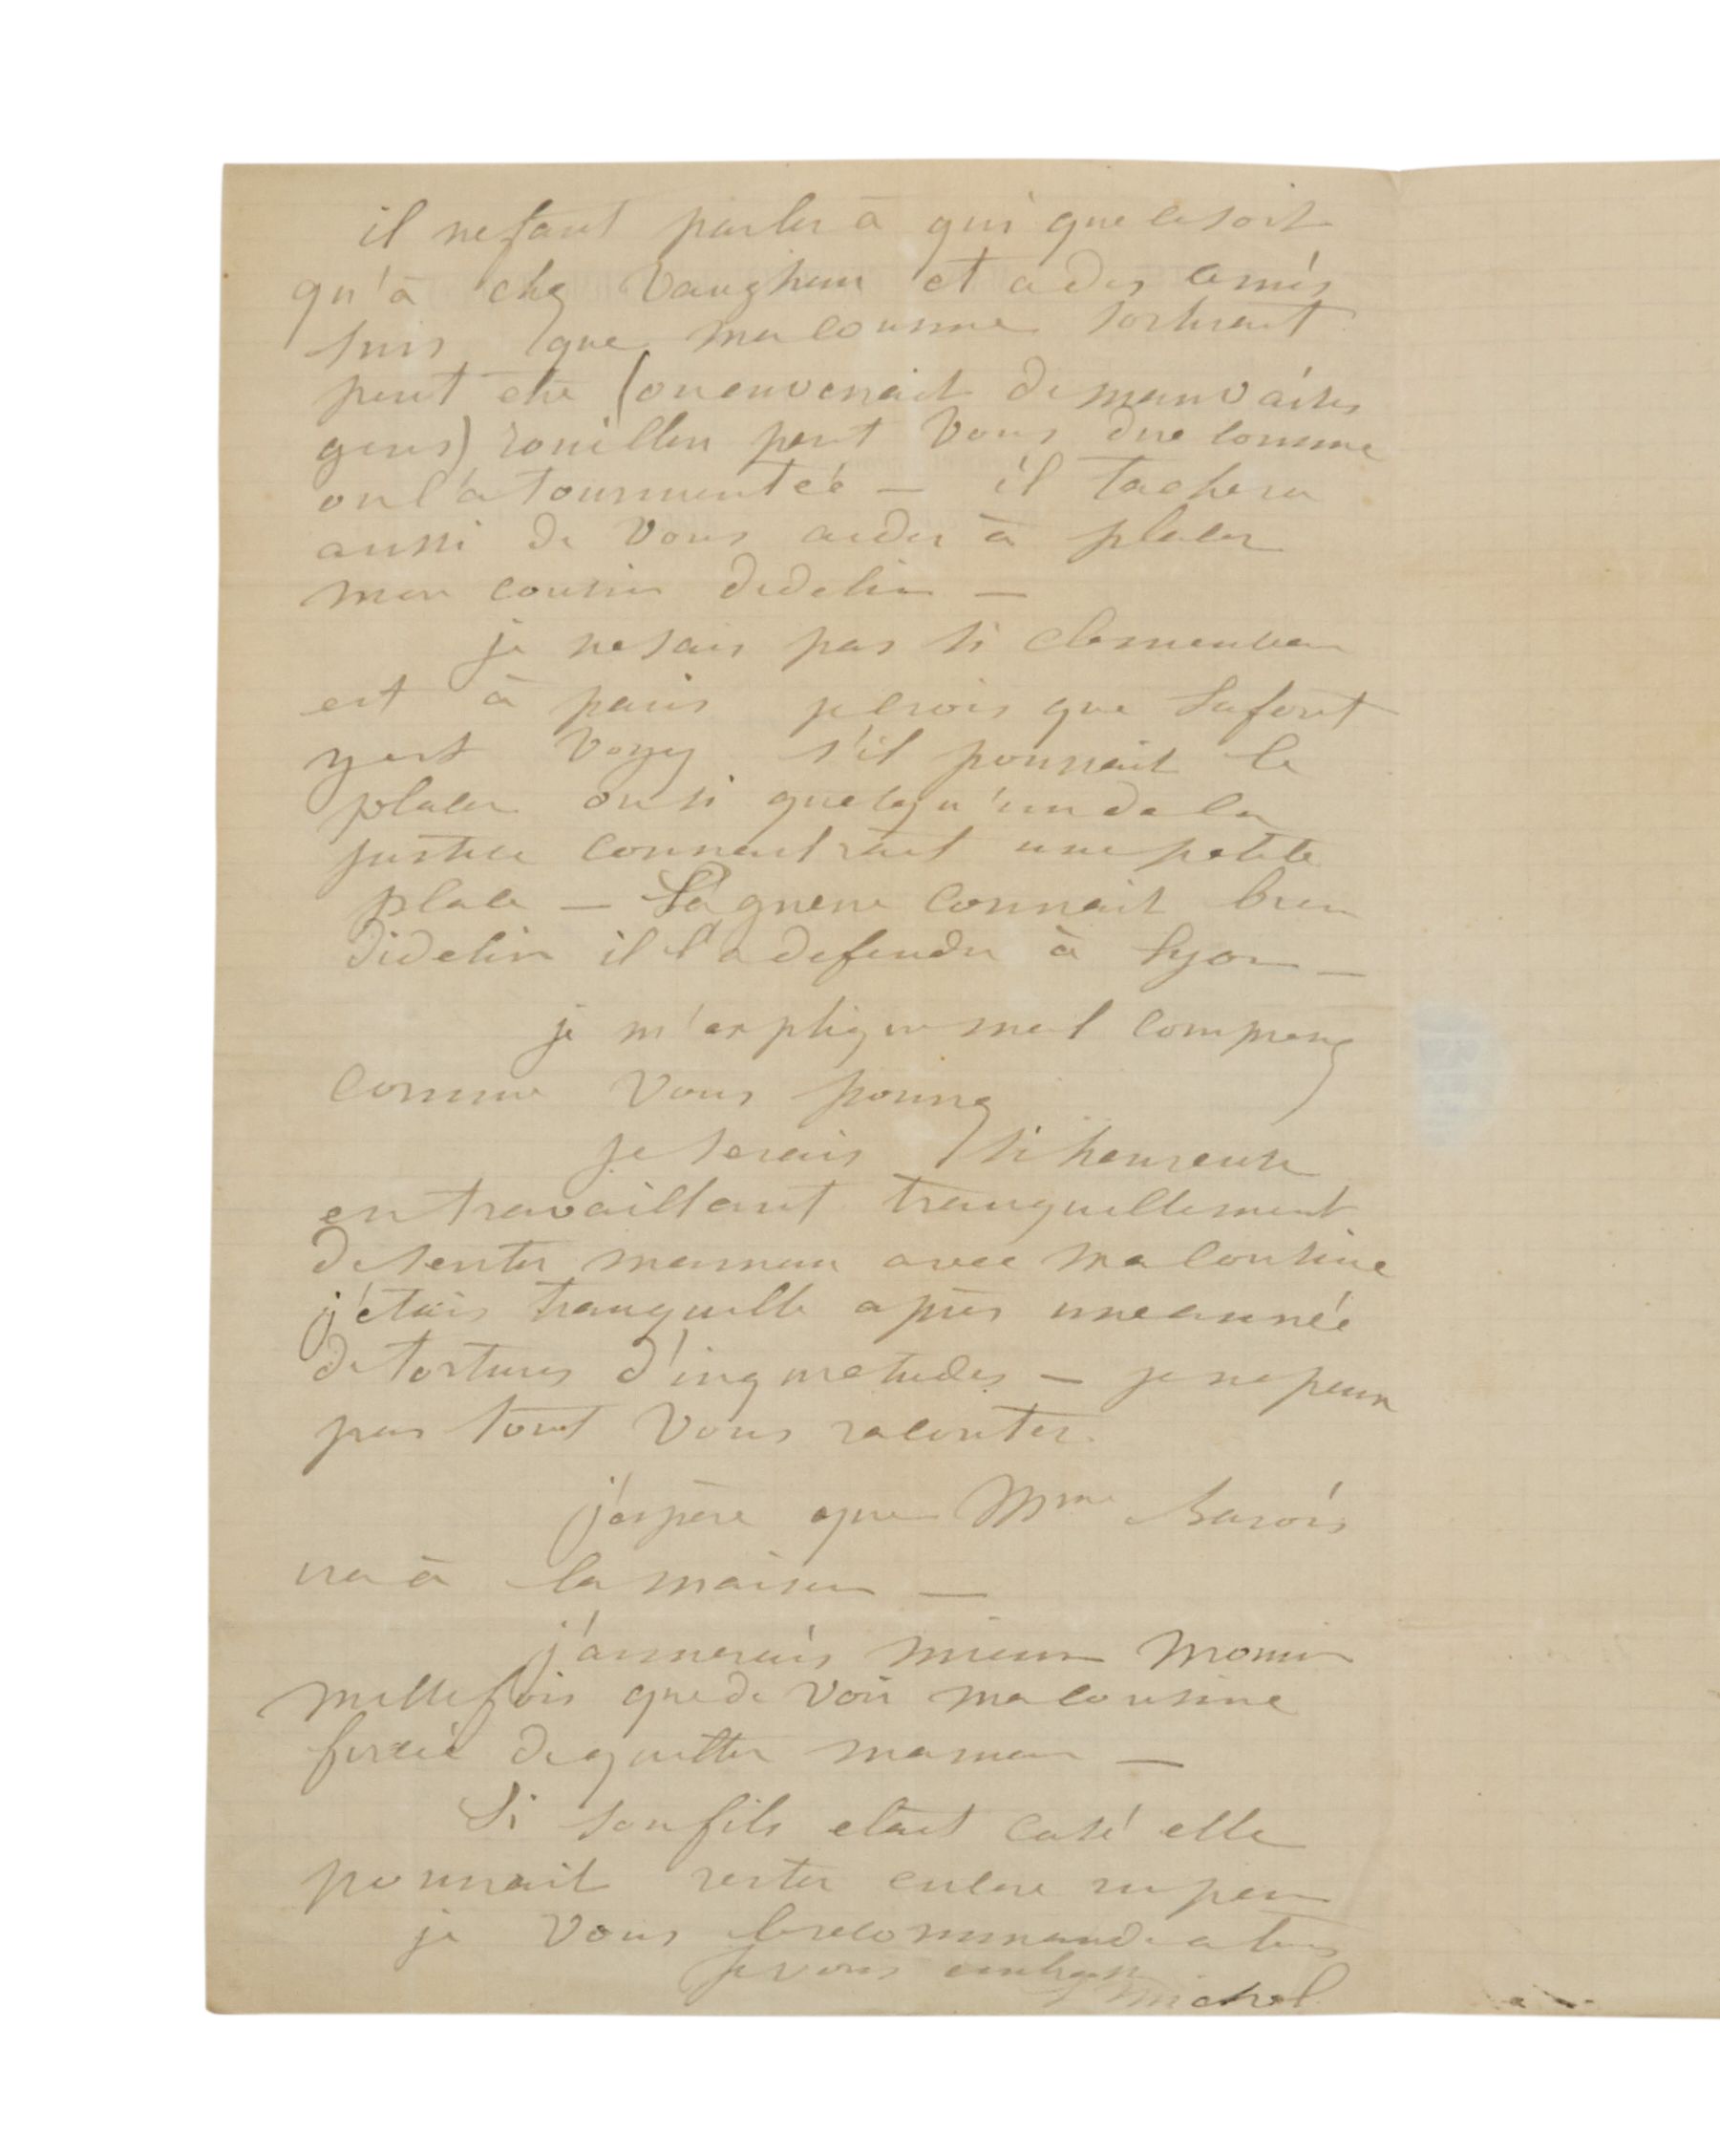 il ne faut parler à qui que ce soit
qu'à chez Vaughan et a des amis
surs que ma cousine
peut etre (on enverrait de mauvaises
gens) rouillon peut vous dire comme
on l'a tourmentéé — il tachera
aussi de vous aider à placer
mon cousin didelin —
je ne sais pas si clemenceau
est à paris je crois que Lafont
y est voyez s'il pourrait le
placer ou si quelqu'un de la
justice connaitrait une petite
place — Laguerre connait bien
didelin il l'a defendu à Lyon —
je m'explique mal comprenez
comme vous pourrez
je serais si heureuse
en travaillant tranquillement
de sentir maman avec ma cousine
j'étais tranquille apres une annéé
de tortures d'inquietudes — je ne peux
pas tout vous raconter.
j'espère que Mme Barois
ira à la maison —
j'aimerais mieux mourir
mille fois que de voir ma cousine
forcéé de quitter maman —
Si son fils etait casé elle
pourrait rester encore un peu
je vous le recommande a tous
je vous embrasse
Michel